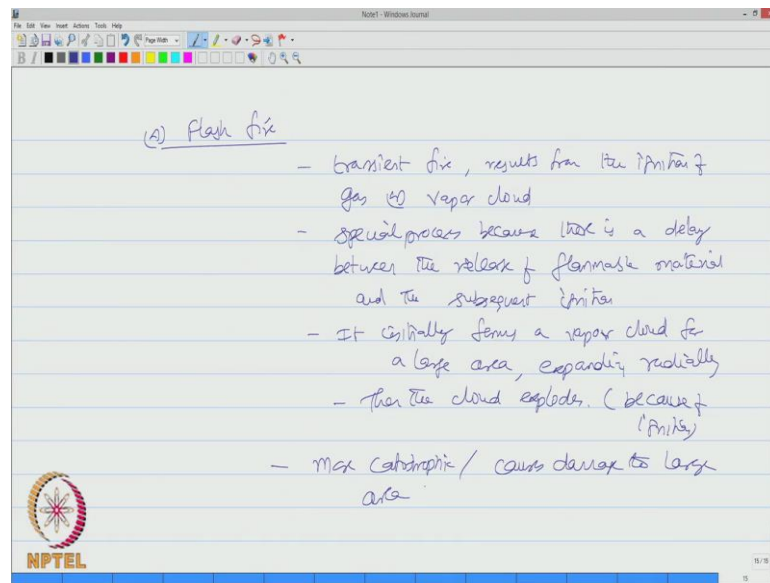 Note1 - Windows Journal
File Edit View Insert Actions Tools Help
Page Width
B I
(A) Flash fire
- transient fire, results from the ignition of
gas (or) vapor cloud
- special process because there is a delay
between the release of flammable material
and the subsequent ignition
- It initially forms a vapour cloud for
a large area, expanding radially
- Then the cloud explodes. (because of
ignition)
- more catastrophic / causes damage to large
area
NPTEL
15/15
15